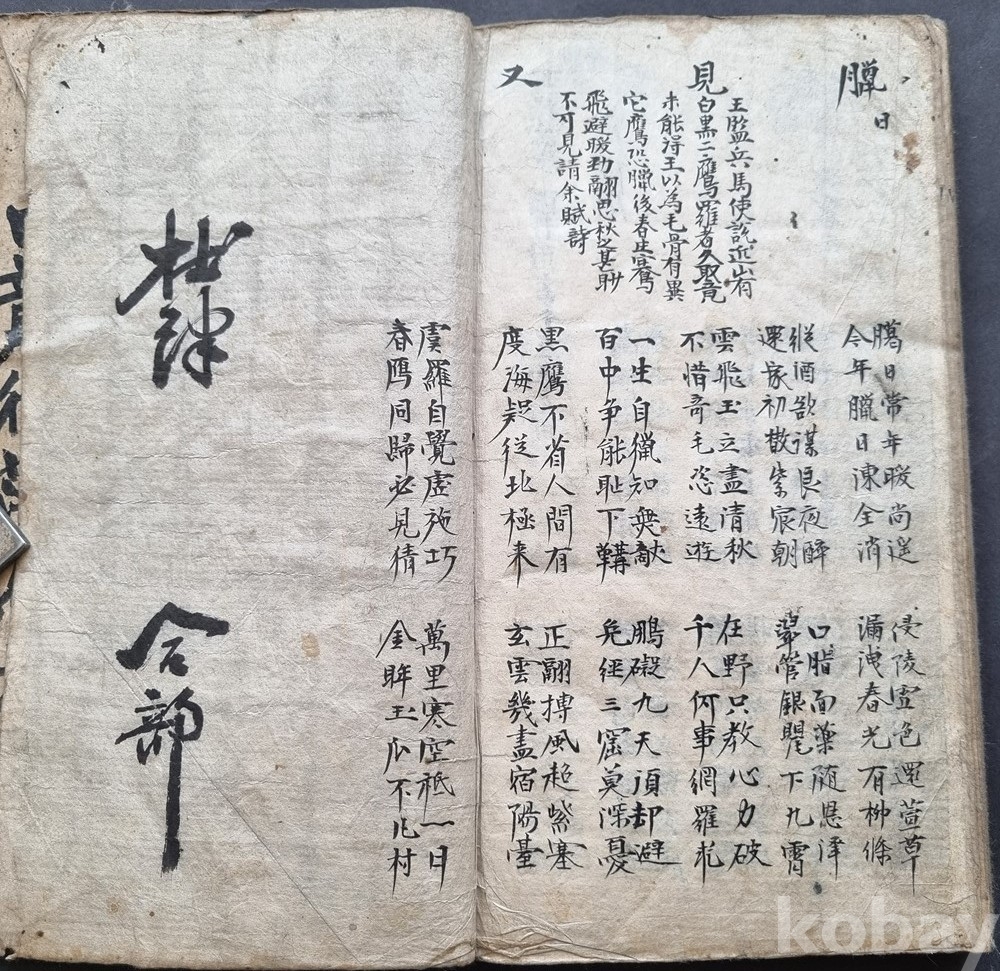 臘日
臈日常年暖尚遥
今年臘日凍全消
侵陵雪色還萱草
漏洩春光有柳條
縱酒欲謀良夜醉
還家初散紫宸朝
口脂面藥随恩澤
翠管銀甖下九霄
見
王監兵馬使説近山有
白黒二鷹羅者久取竟
未能得王以為毛骨有異
它鷹恐臘後春生騫
飛避暖勁翮思秋之甚眇
不可見請余賦詩
雲飛玉立盡清秋
不惜奇毛恣遠遊
在野只教心力破
千人何事網羅求
一生自獵知無敵
百中争能恥下鞲
鵬礙九天須却避
兔經三窟莫深憂
又
黒鷹不省人間有
度海疑從北極来
正翮摶風超紫塞
玄雲幾盡宿陽臺
虞羅自覺虚施巧
春鴈同歸必見猜
萬里寒空祗一日
金眸玉爪不凡材
杜律
合部
kobay